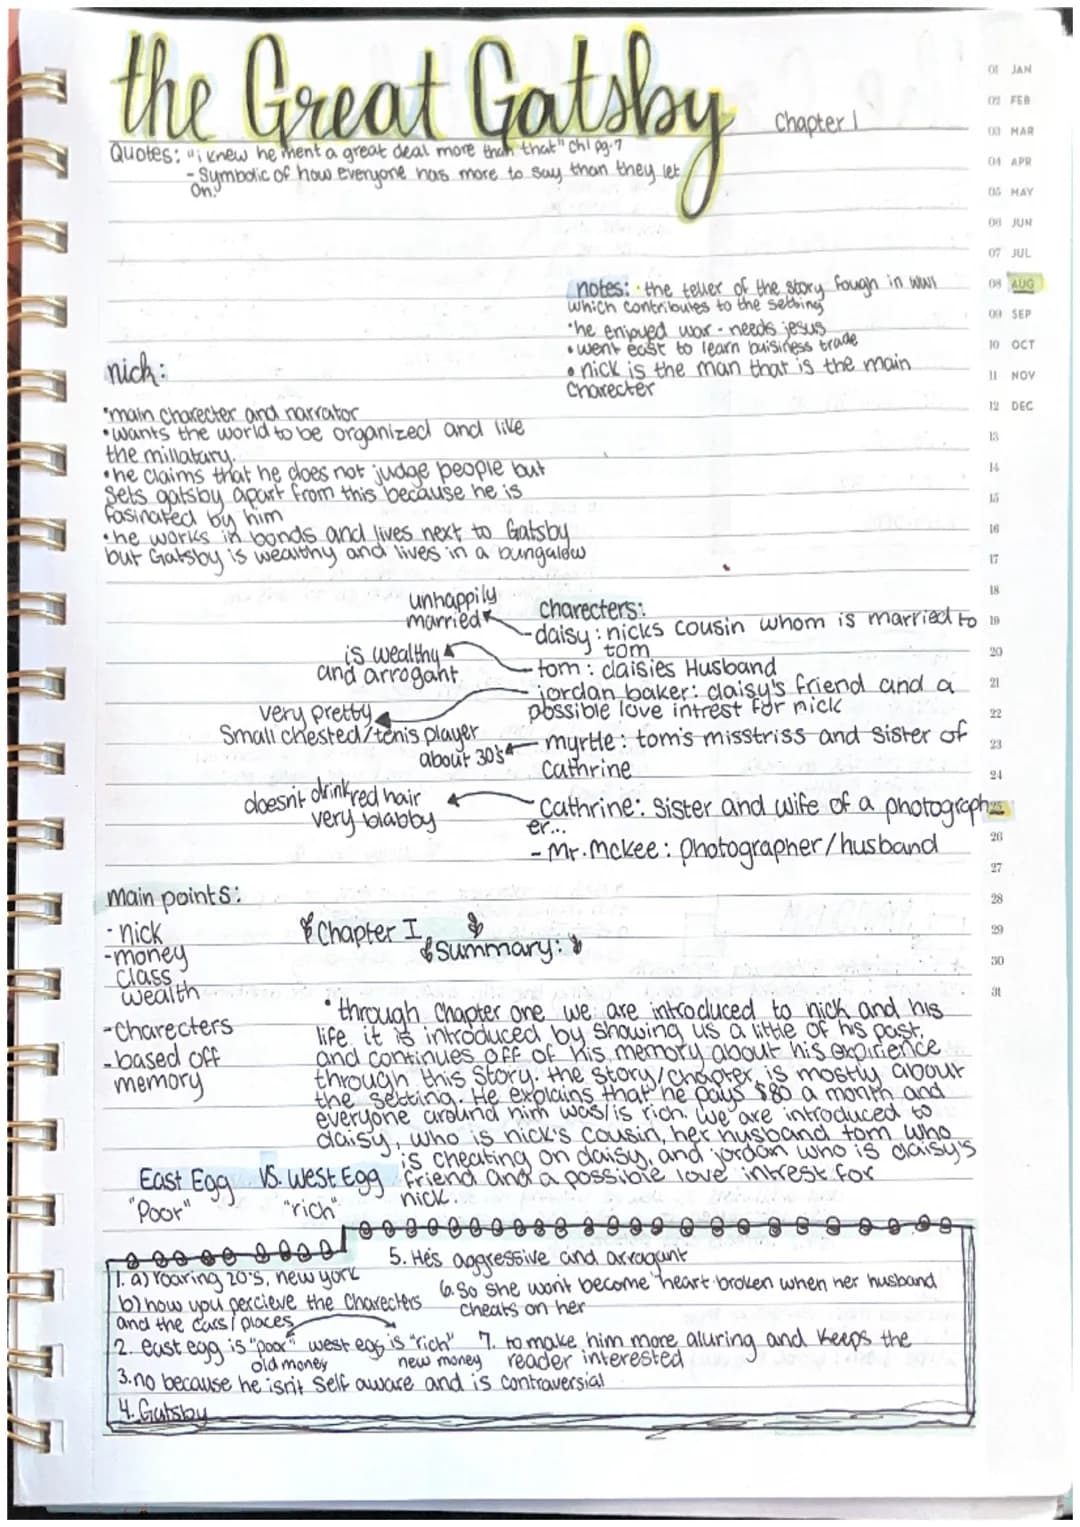 the Great Gatsby
Chapter 1
Quotes: "i knew he ment a great deal more than that" Ch1 pg.7
- Symbolic of how everyone has more to say than they let
on.
notes: · the teller of the story fough in WW1
which contributes to the setting
·he enjoyed war - needs jesus
• went east to learn buisiness trade
• nick is the man that is the main
Charecter
nick:
·main charecter and narrator
•wants the world to be organized and like
the millatary.
•he claims that he does not judge people but
Sets gatsby apart from this because he is
fasinated by him
•he works in bonds and lives next to Gatsby
but Gatsby is wealthy and lives in a bungalow
unhappily
married
charecters:
-daisy: nicks cousin whom is married to
tom
is wealthy
and arrogant
-tom: daisies Husband
-jordan baker: daisy's friend and a
possible love intrest for nick
very pretty
Small chested/tenis player
about 30's
- myrtle: tom's misstriss and sister of
Cathrine
doesn't drink red hair
very blabby
-Cathrine: Sister and wife of a photograph
er...
- Mr. Mckee: photographer/husband
main points:
- nick
-money
class
wealth
-Charecters
-based off
memory
Chapter I
Summary:
• through Chapter one we are introduced to nick and his
life. it is introduced by showing us a little of his past,
and continues off of his memory about his expirience
through this story. the story/chapter is mostly about
the setting. He explains that he pays $80 a month and
everyone around him was/is rich. we are introduced to
daisy, who is nick's cousin, her husband tom who
is cheating on daisy, and jordan who is daisy's
friend and a possible love intrest for
nick.
East Egg VS. West Egg
"Poor" "rich"
1. a) roaring 20's, new york
b) how you percieve the Charecters
and the cars/places
2. east egg is "poor" west egg is "rich"
old money new money
3. no because he isn't self aware and is contraversial
4. Gatsby
5. He's aggressive and arragant
6. So she won't become heart broken when her husband
cheats on her
7. to make him more aluring and keeps the
reader interested
01 JAN
02 FEB
03 MAR
04 APR
05 MAY
06 JUN
07 JUL
08 AUG
09 SEP
10 OCT
11 NOV
12 DEC
13
14
15
16
17
18
19
20
21
22
23
24
25
26
27
28
29
30
31